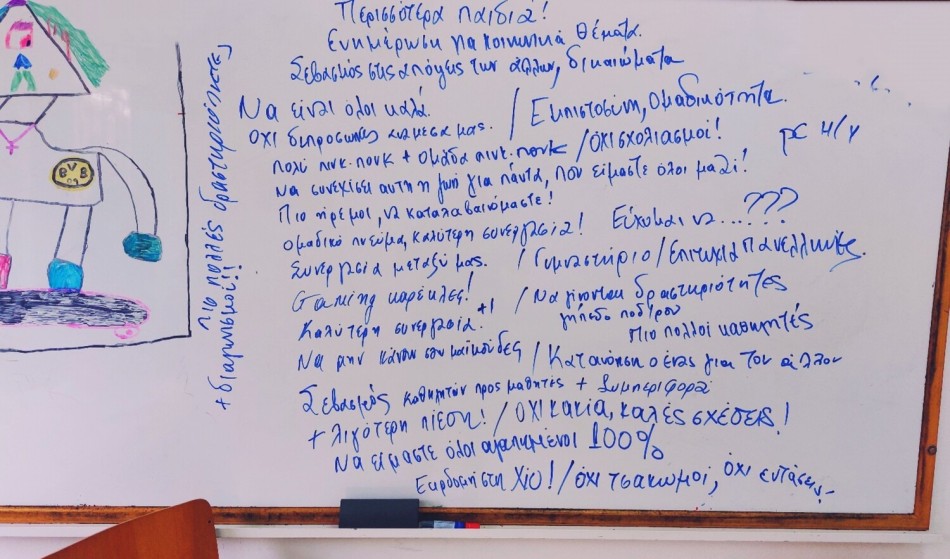 Περισσότερα παιδιά!
Ενημέρωση για κοινωνικά θέματα.
Σεβασμός στις απόψεις των άλλων, δικαιώματα
Να είναι όλοι καλά. / Εμπιστοσύνη, Ομαδικότητα.
ΟΧΙ διπροσωπίες ανάμεσα μας.
πολύ πινκ-πονκ + Ομάδα πινκ-πονκ / ΌΧΙ σχολιασμοί! pc Η/Υ
Να συνεχίσει αυτή η ζωή για πάντα, που είμαστε όλοι μαζί!
Πιο ήρεμοι, να καταλαβαινόμαστε!
Ομαδικό πνεύμα, καλύτερη συνεργασία! Εύχομαι να...???
Συνεργασία μεταξύ μας. / Γυμναστήριο / Επιτυχία Πανελλήνιες.
Gaming καρέκλες! / Να γίνονται δραστηριότητες
Καλύτερη συνεργασία. +1 γήπεδο ποδ/ρου
Πιο πολλοί καθηγητές
Να μην κάνουν σαν μαϊμούδες / Κατανόηση ο ένας για τον άλλον
Σεβασμός καθηγητών προς μαθητές + Συμπεριφορά
+ λιγότερη πίεση! / ΟΧΙ κακία, καλές σχέσεις!
Να είμαστε όλοι αγαπημένοι 100%
Εκδρομή στη Χίο! / όχι τσακωμοί, όχι εντάσεις.
πιο πολλές δραστηριότητες,
+ διαγωνισμοί!!
BVB